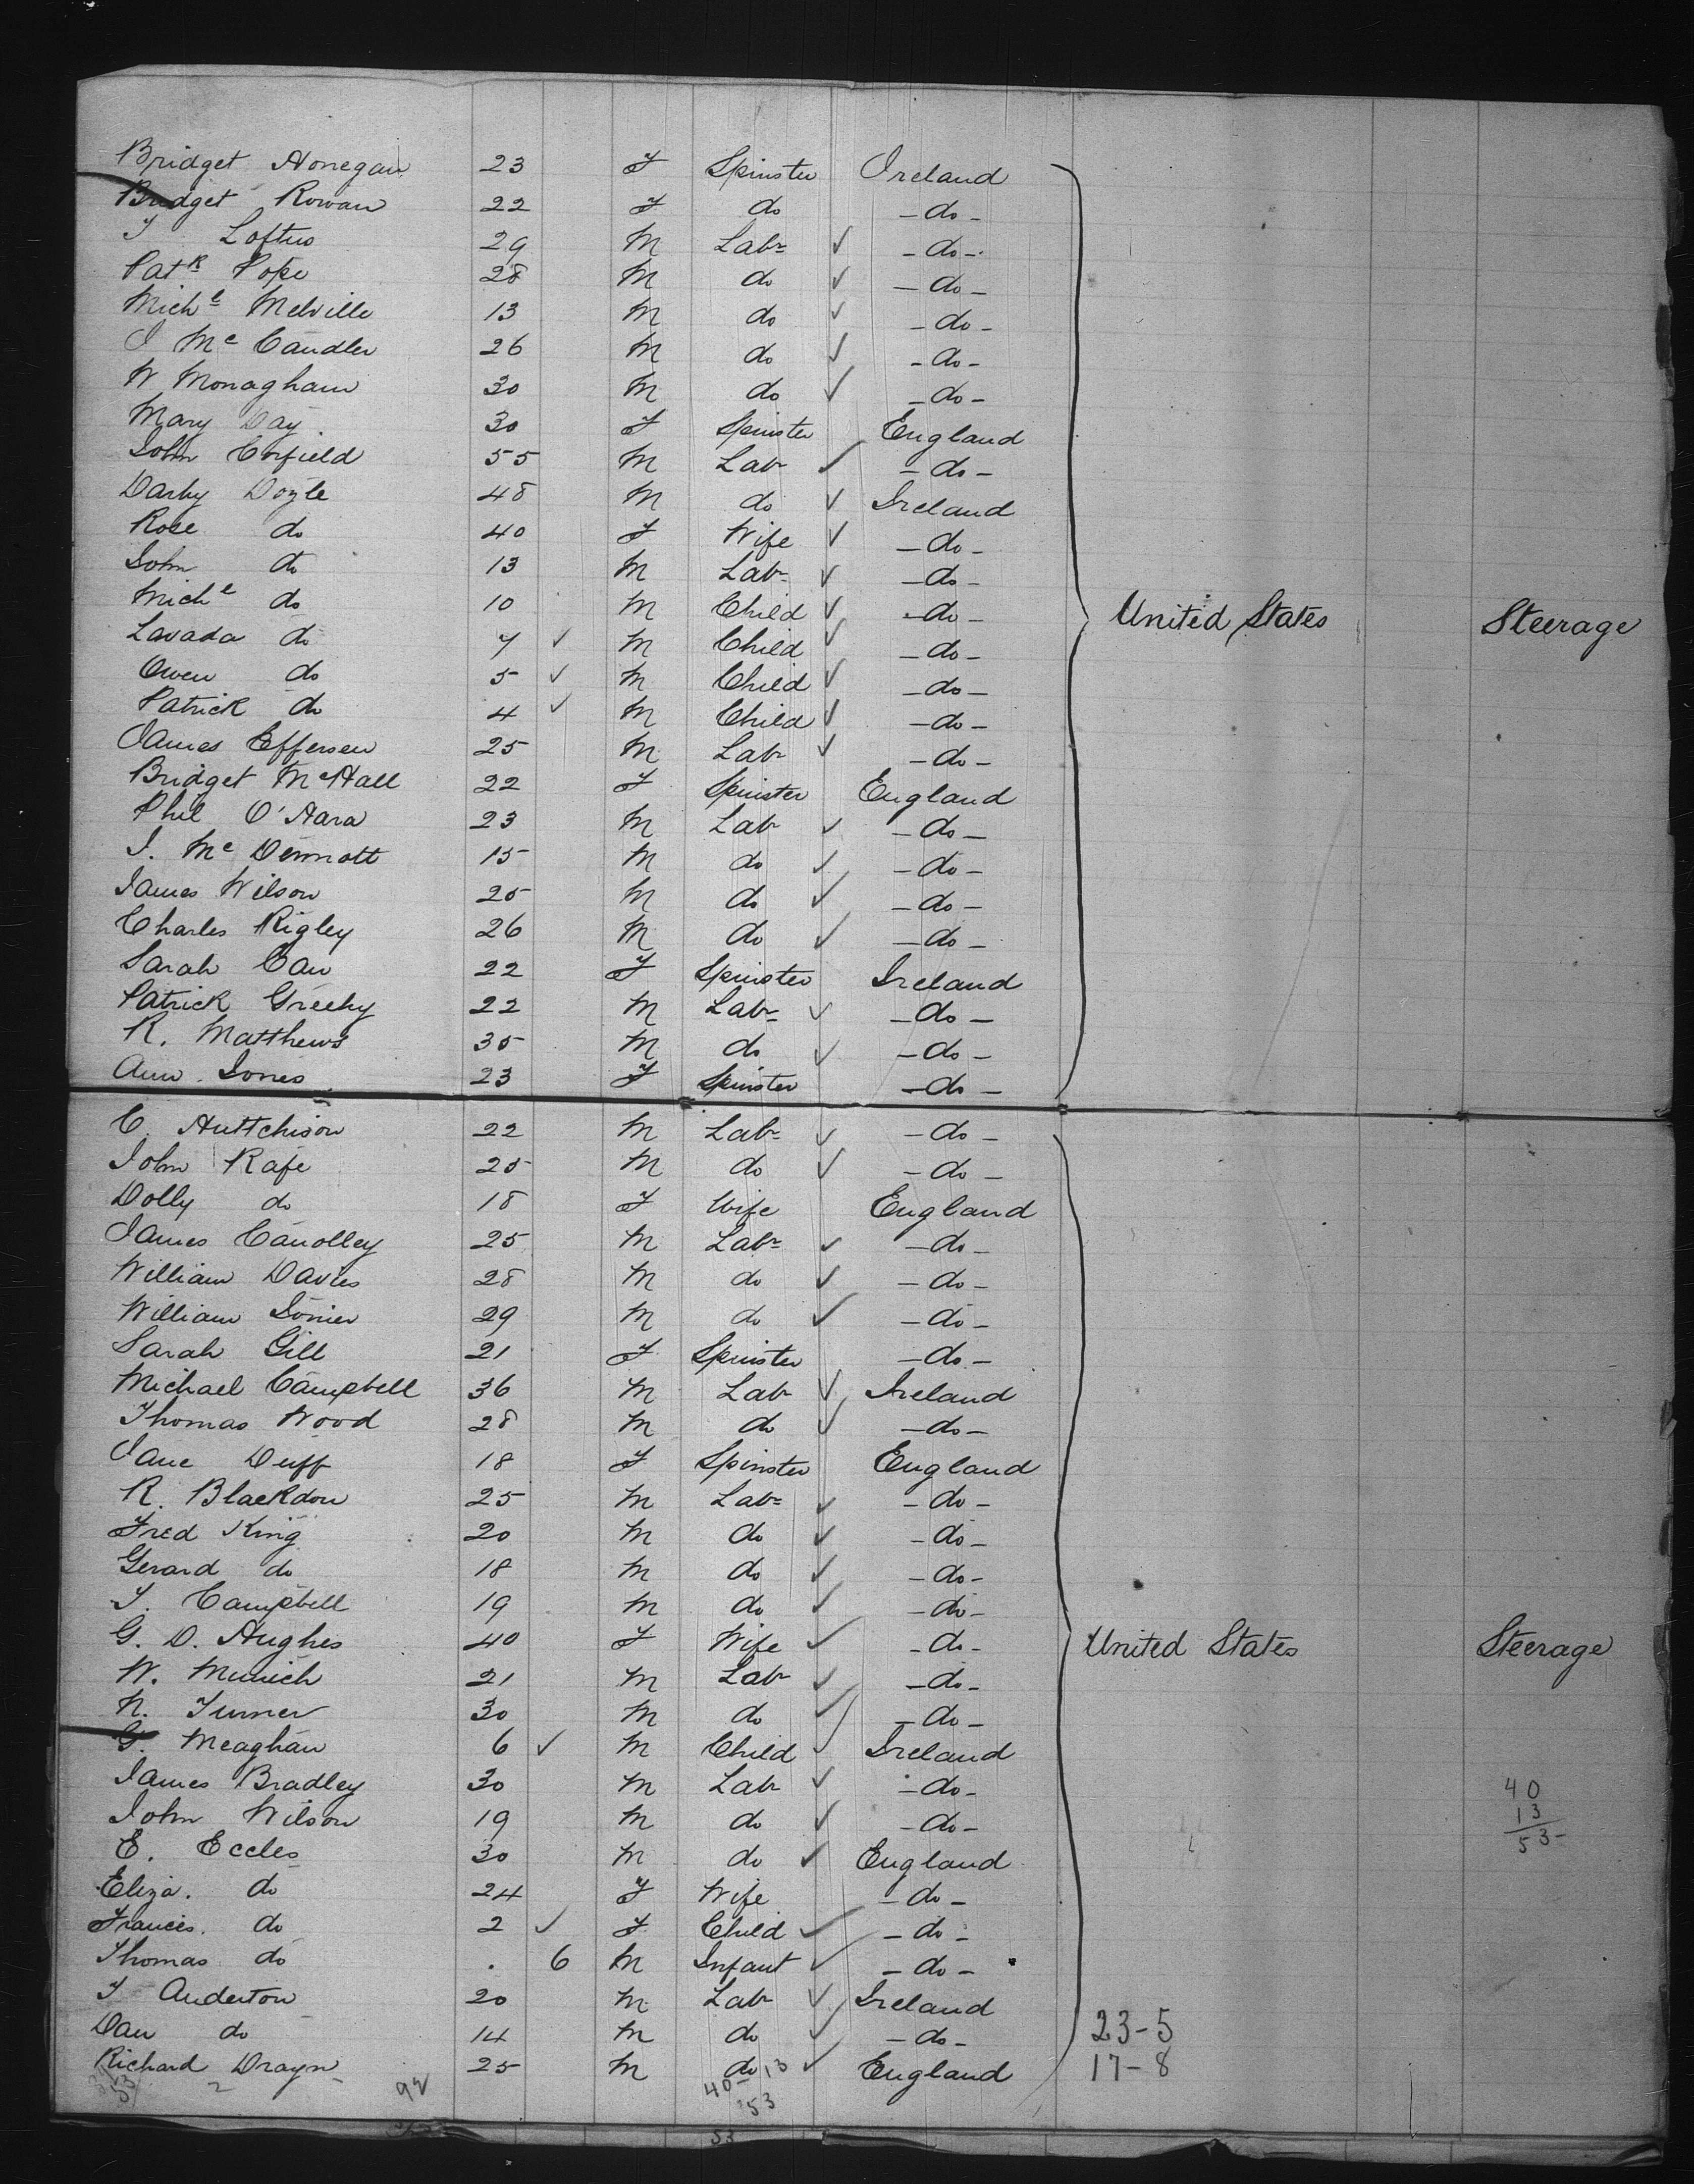 Bridget Honegan 23 F Spinster Ireland
Bridget Rowan 22 F do - do -
T Loftus 29 M Labr ✓ - do -
Patk Pope 28 M do ✓ - do -
Michl Melville 13 M do ✓ - do -
J McCandler 26 M do ✓ - do -
W Monagham 30 M do ✓ - do -
Mary Day 30 F Spinster England
John Corfield 55 M Labr ✓ - do -
Darby Doyle 48 M do ✓ Ireland
Rose do 40 F Wife ✓ - do -
John do 13 M Labr ✓ - do -
Michl do 10 M Child ✓ - do - United States Steerage
Lavada do 7 ✓ M Child ✓ - do -
Owen do 5 ✓ M Child ✓ - do -
Patrick do 4 ✓ M Child ✓ - do -
James Effersen 25 M Labr ✓ - do -
Bridget McHall 22 F Spinster England
Phil O'Hara 23 M Labr ✓ - do -
J. McDermott 15 M do ✓ - do -
James Wilson 25 M do ✓ - do -
Charles Rigley 26 M do ✓ - do -
Sarah Carr 22 F Spinster Ireland
Patrick Greehy 22 M Labr ✓ - do -
R. Matthews 35 M do ✓ - do -
Ann Jones 23 F Spinster - do -
C. Huttchison 22 M Labr ✓ - do -
John Rafe 25 M do ✓ - do -
Dolly do 18 F Wife England
James Canolley 25 M Labr ✓ - do -
William Davies 28 M do ✓ - do -
William 29 M do ✓ - do -
Sarah Gill 21 F Spinster - do -
Michael Campbell 36 M Labr ✓ Ireland
Thomas Wood 28 M do ✓ - do -
Jane Duff 18 F Spinster England
R. Blackdon 25 M Labr ✓ - do -
Fred King 20 M do ✓ - do -
Gerard do 18 M do ✓ - do -
T. Campbell 19 M do ✓ - do -
G. D. Hughes 40 F Wife ✓ - do - United States Steerage
W. Munich 21 M Labr ✓ - do -
N. Turner 30 M do ✓ - do -
G. Meaghan 6 ✓ M Child ✓ Ireland
James Bradley 30 M Labr ✓ - do - 40
John Wilson 19 M do ✓ - do - 13
E. Eccles 30 M do ✓ England 53-
Eliza. do 24 F Wife - do -
Francis. do 2 ✓ F Child ✓ - do -
Thomas do . 6 M Infant ✓ - do -
T Anderton 20 M Labr ✓ Ireland
Dan do 14 M do ✓ - do - 23-5
Richard Drayn 25 M do ✓ England 17-8
53 2 92 40-13
53
53